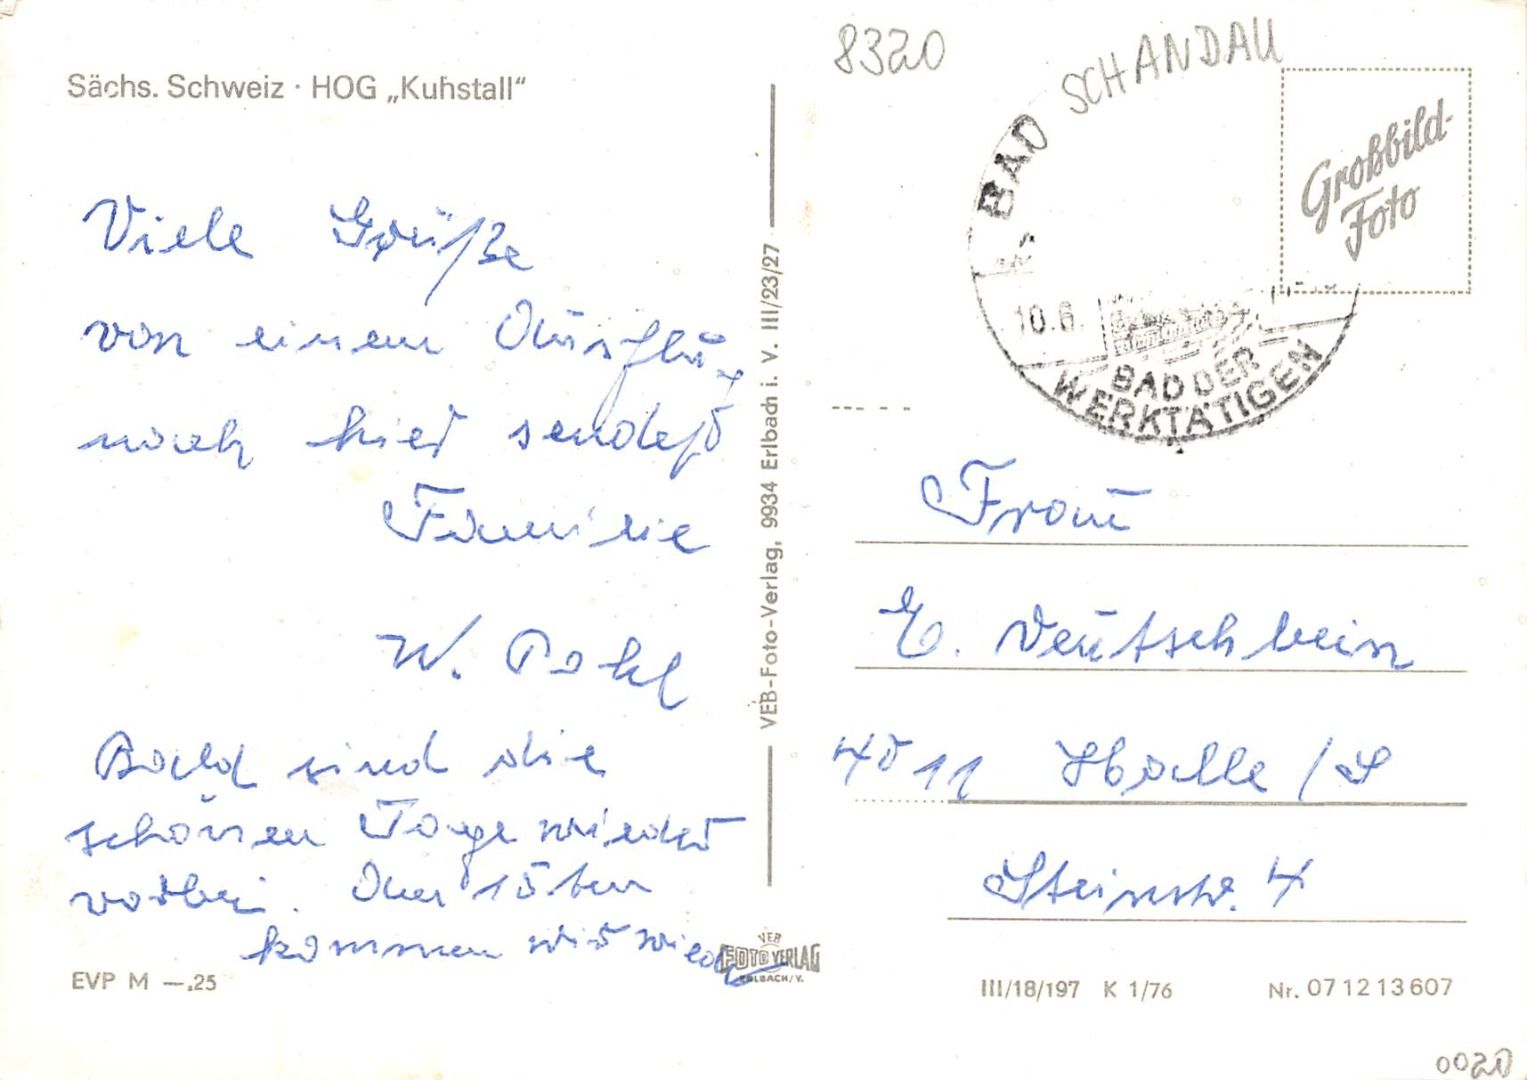 Sächs. Schweiz · HOG „Kuhstall“
Viele Grüße
von einem Ausflug
nach hier sendet
Familie
W. Pohl
Bald sind die
schönen Tage wieder
vorbei. Am 15ten
kommen wir wieder
EVP M —.25
VEB-Foto-Verlag, 9934 Erlbach i. V. III/23/27
VEB
FOTO VERLAG
ERLBACH/V.
8320
BAD SCHANDAU
10.6.
BAD DER
WERKTÄTIGEN
Großbild-
Foto
Frau
E. Deutschbein
4011 Halle/S
Steinstr. 4
III/18/197 K 1/76 Nr. 07 12 13 607
0020